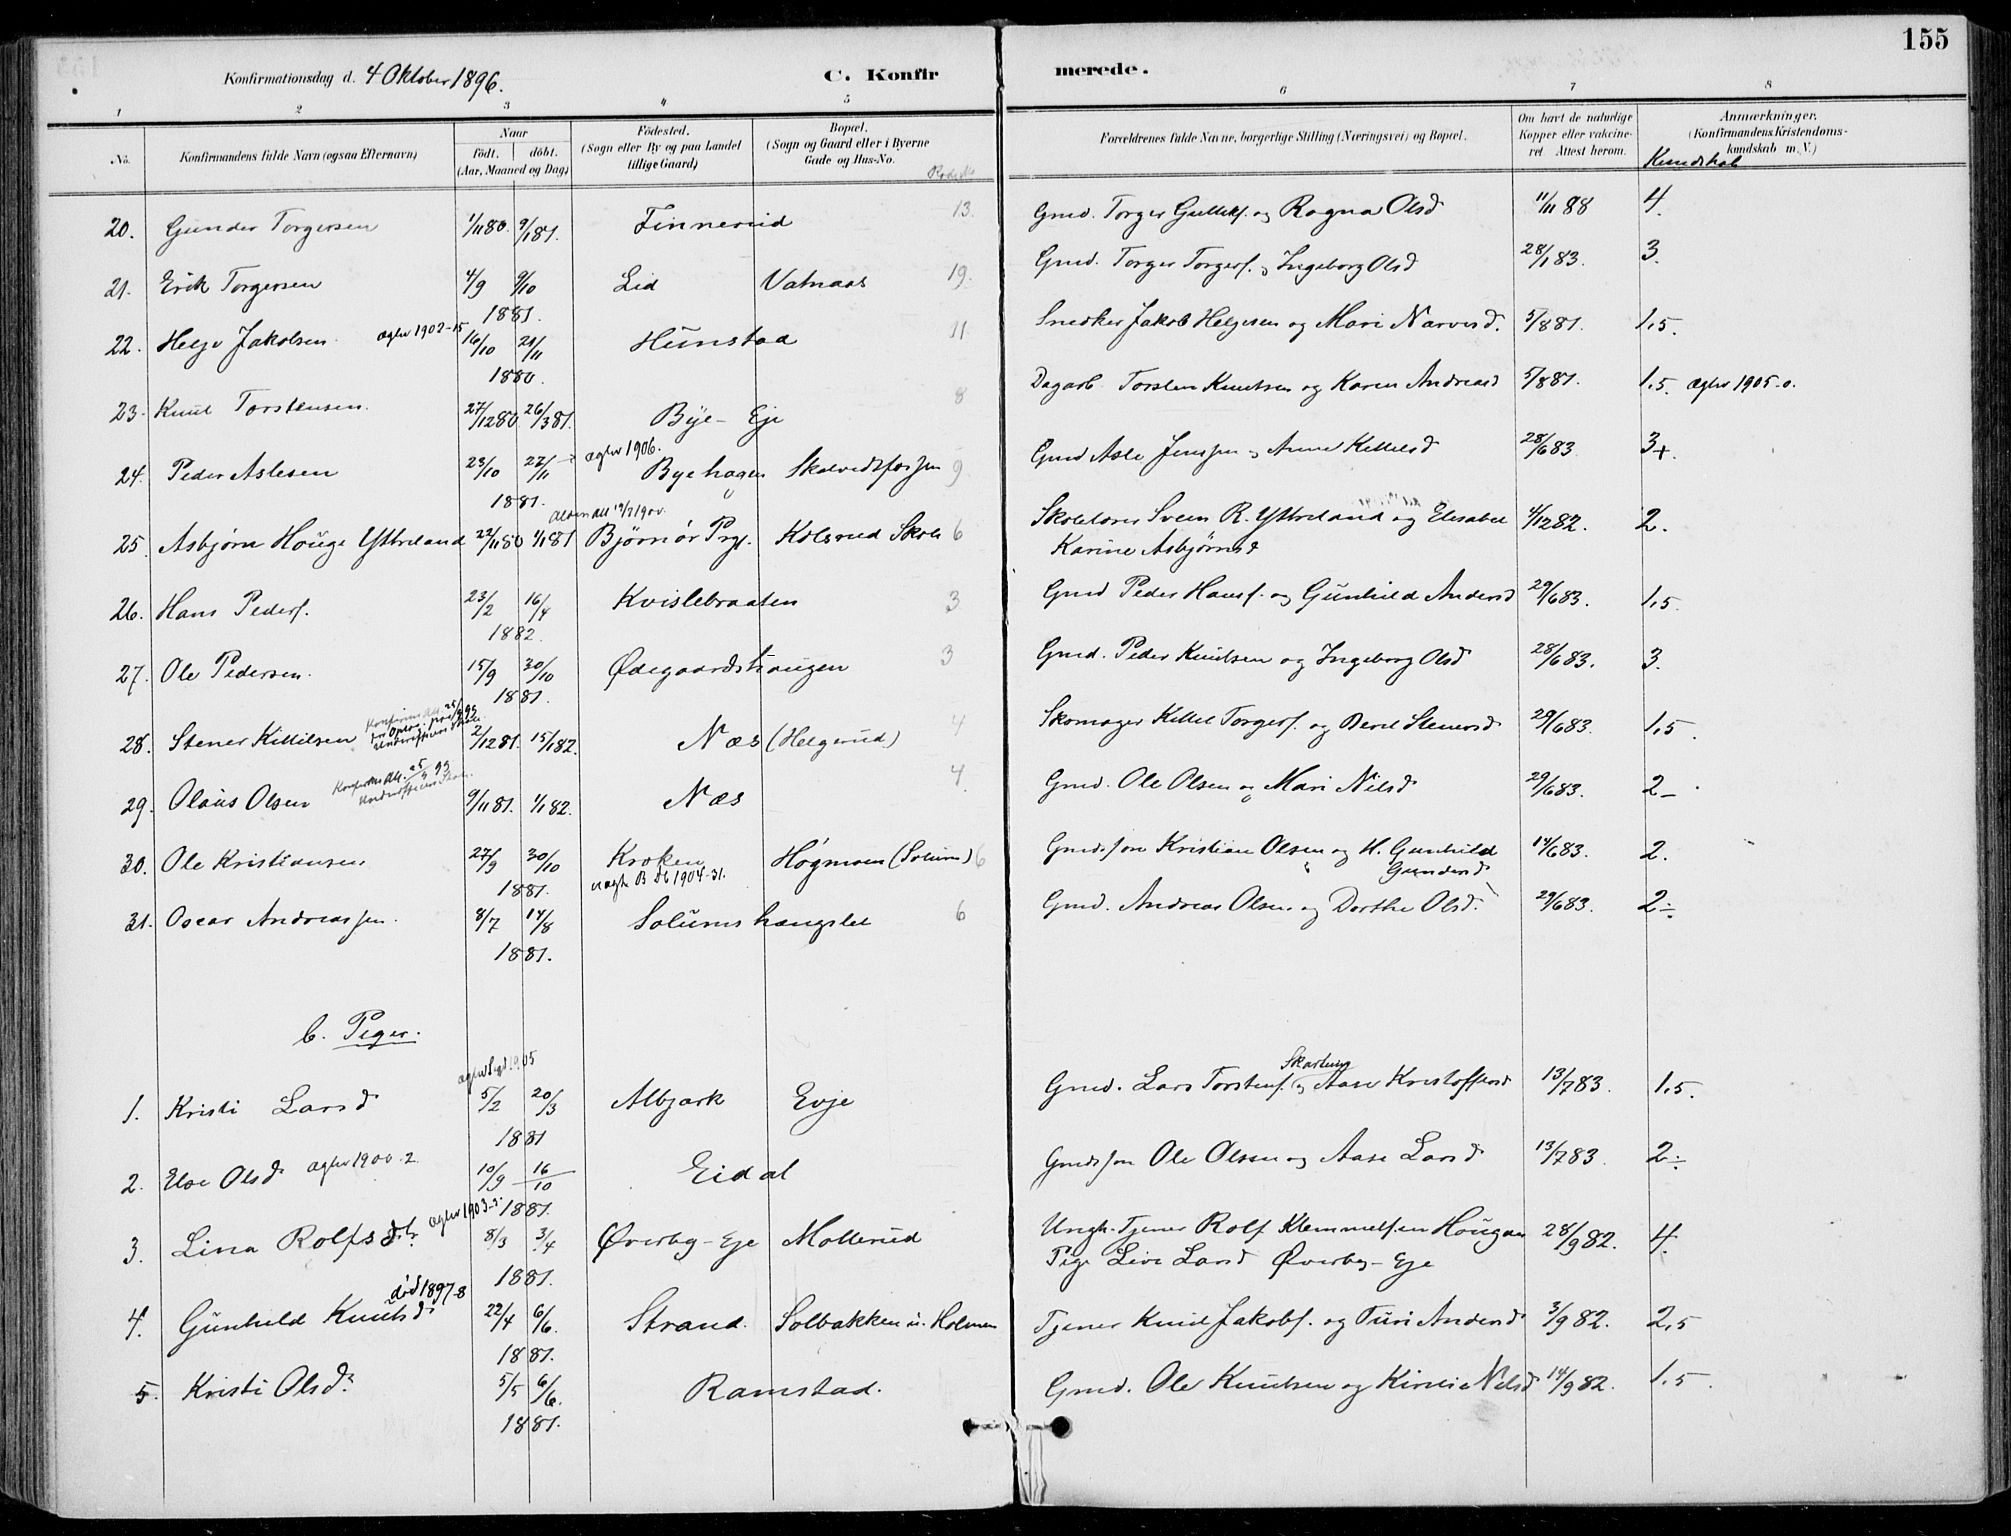 155
Konfirmationsdag d. 4 Oktober 1896.
C. Konfirmerede.
1 2 3 4 5 6 7 8
No.
Konfirmandens fulde Navn (ogsaa Efternavn)
Naar
født. døbt.
(Aar, Maaned og Dag)
Fødested.
(Sogn eller By og paa Landet
tillige Gaard)
Bopæl.
(Sogn og Gaard eller i Byerne
Gade og Hus-No.
Forældrenes fulde Navne, borgerlige Stilling (Næringsvei) og Bopæl.
Om havt de naturlige
Kopper eller vakcine-
ret. Attest herom.
Anmærkninger.
(Konfirmandens Kristendoms-
kundskab m. V.)
Kundskab
20. Gunder Torgersen 1/11 80. 9/1 81. Finnerud 13. Gmd. Torger Gulliksf. og Ragna Olsd 11/11 88 4.
21. Erik Torgersen 4/9 9/10 1881. Lid Vatnaas 19. Gmd. Torger Torgersf. og Ingeborg Olsd 28/1 83. 3.
22. Helge Jakobsen agtev 1902-15 16/10 21/11 1880. Hunstad 11 Snedker Jakob Helgesen og Mari Narvesd. 5/8 81. 1,5.
23. Knut Torstensen. 27/12 80 26/3 81. Bye-Eje 8 Dagarb. Torsten Knutsen og Karen Andreasd 5/8 81. 1,5. agtev 1905-0.
24. Peder Aslesen 23/10 27/11 1881. agtev 1906. Byehagen 9 Gmd Asle Jenssen og Anne Kittelsd 28/6 83. 3+.
25. Asbjørn Houge Yttreland 22/11 80 1/1 81 Bjørnør Prgj. Kolsrud Skole 6 Skolelærer Svein R. Yttreland og Elisabet 4/12 82. 2.
Karine Asbjørnsd
26. Hans Pedersf. 23/2 16/4 1882. Kvislebraaten 3 Gmd Peder Hansf. og Gunhild Andersd 29/6 83. 1,5.
27. Ole Pedersen. 15/9 30/10 1881. Ødegaardshaugen 3 Gmd. Peder Knutsen og Ingeborg Olsd 28/6 83. 3.
28. Stener Kittilsen 2/12 81. 15/1 82. Næs (Helgerud) 4 Skomager Kittel Torgersf. og Berit Stenersd 29/6 83. 1,5.
29. Olaus Olsen 9/11 81. 1/1 82. Næs 4. Gmd. Ole Olsen og Mari Nilsd 29/6 83. 2-
30. Ole Kristiansen 27/9 30/10 1881. Kroken Høgmoen (Solum) 6 Gmdsøn Kristian Olsen og H. Gunhild 14/6 83. 2.
Gundersd
31. Oscar Andreassen. 8/7 14/8 1881. Solumshængslet 6 Gmd. Andreas Olsen og Dorthe Olsd. 29/6 83. 2÷
b. Piger.
1. Kristi Larsd 5/2 20/3 1881 Albjerk Evje Gmd. Lars Torstensf. og Aase Kristoffersd 13/7 83. 1,5.
2. Else Olsd agtev 1900-2 10/9 16/10 1881. Eidal Gmdsøn Ole Olsen og Aase Larsd 13/7 83. 2÷
3. Lina Rolfsdtr. agtev 1903-3. 8/3 3/4 1881. Øverby-Eje Mollerud Ungk. Tjener Rolf Klemmetsen Hougan 28/9 82. 4.
Pige Live Larsd Øverby-Eje
død 1897-8
4. Gunhild Knutsd. 22/4 6/6. 1881. Strand. Solbakken u. Holmen Tjener Knut Jakobf. og Turi Andersd 3/9 82. 2,5
5. Kristi Olsd. 5/5 6/6. 1881. Ramstad. Gmd. Ole Knutsen og Kirsti Nilsd 14/9 82. 1,5.